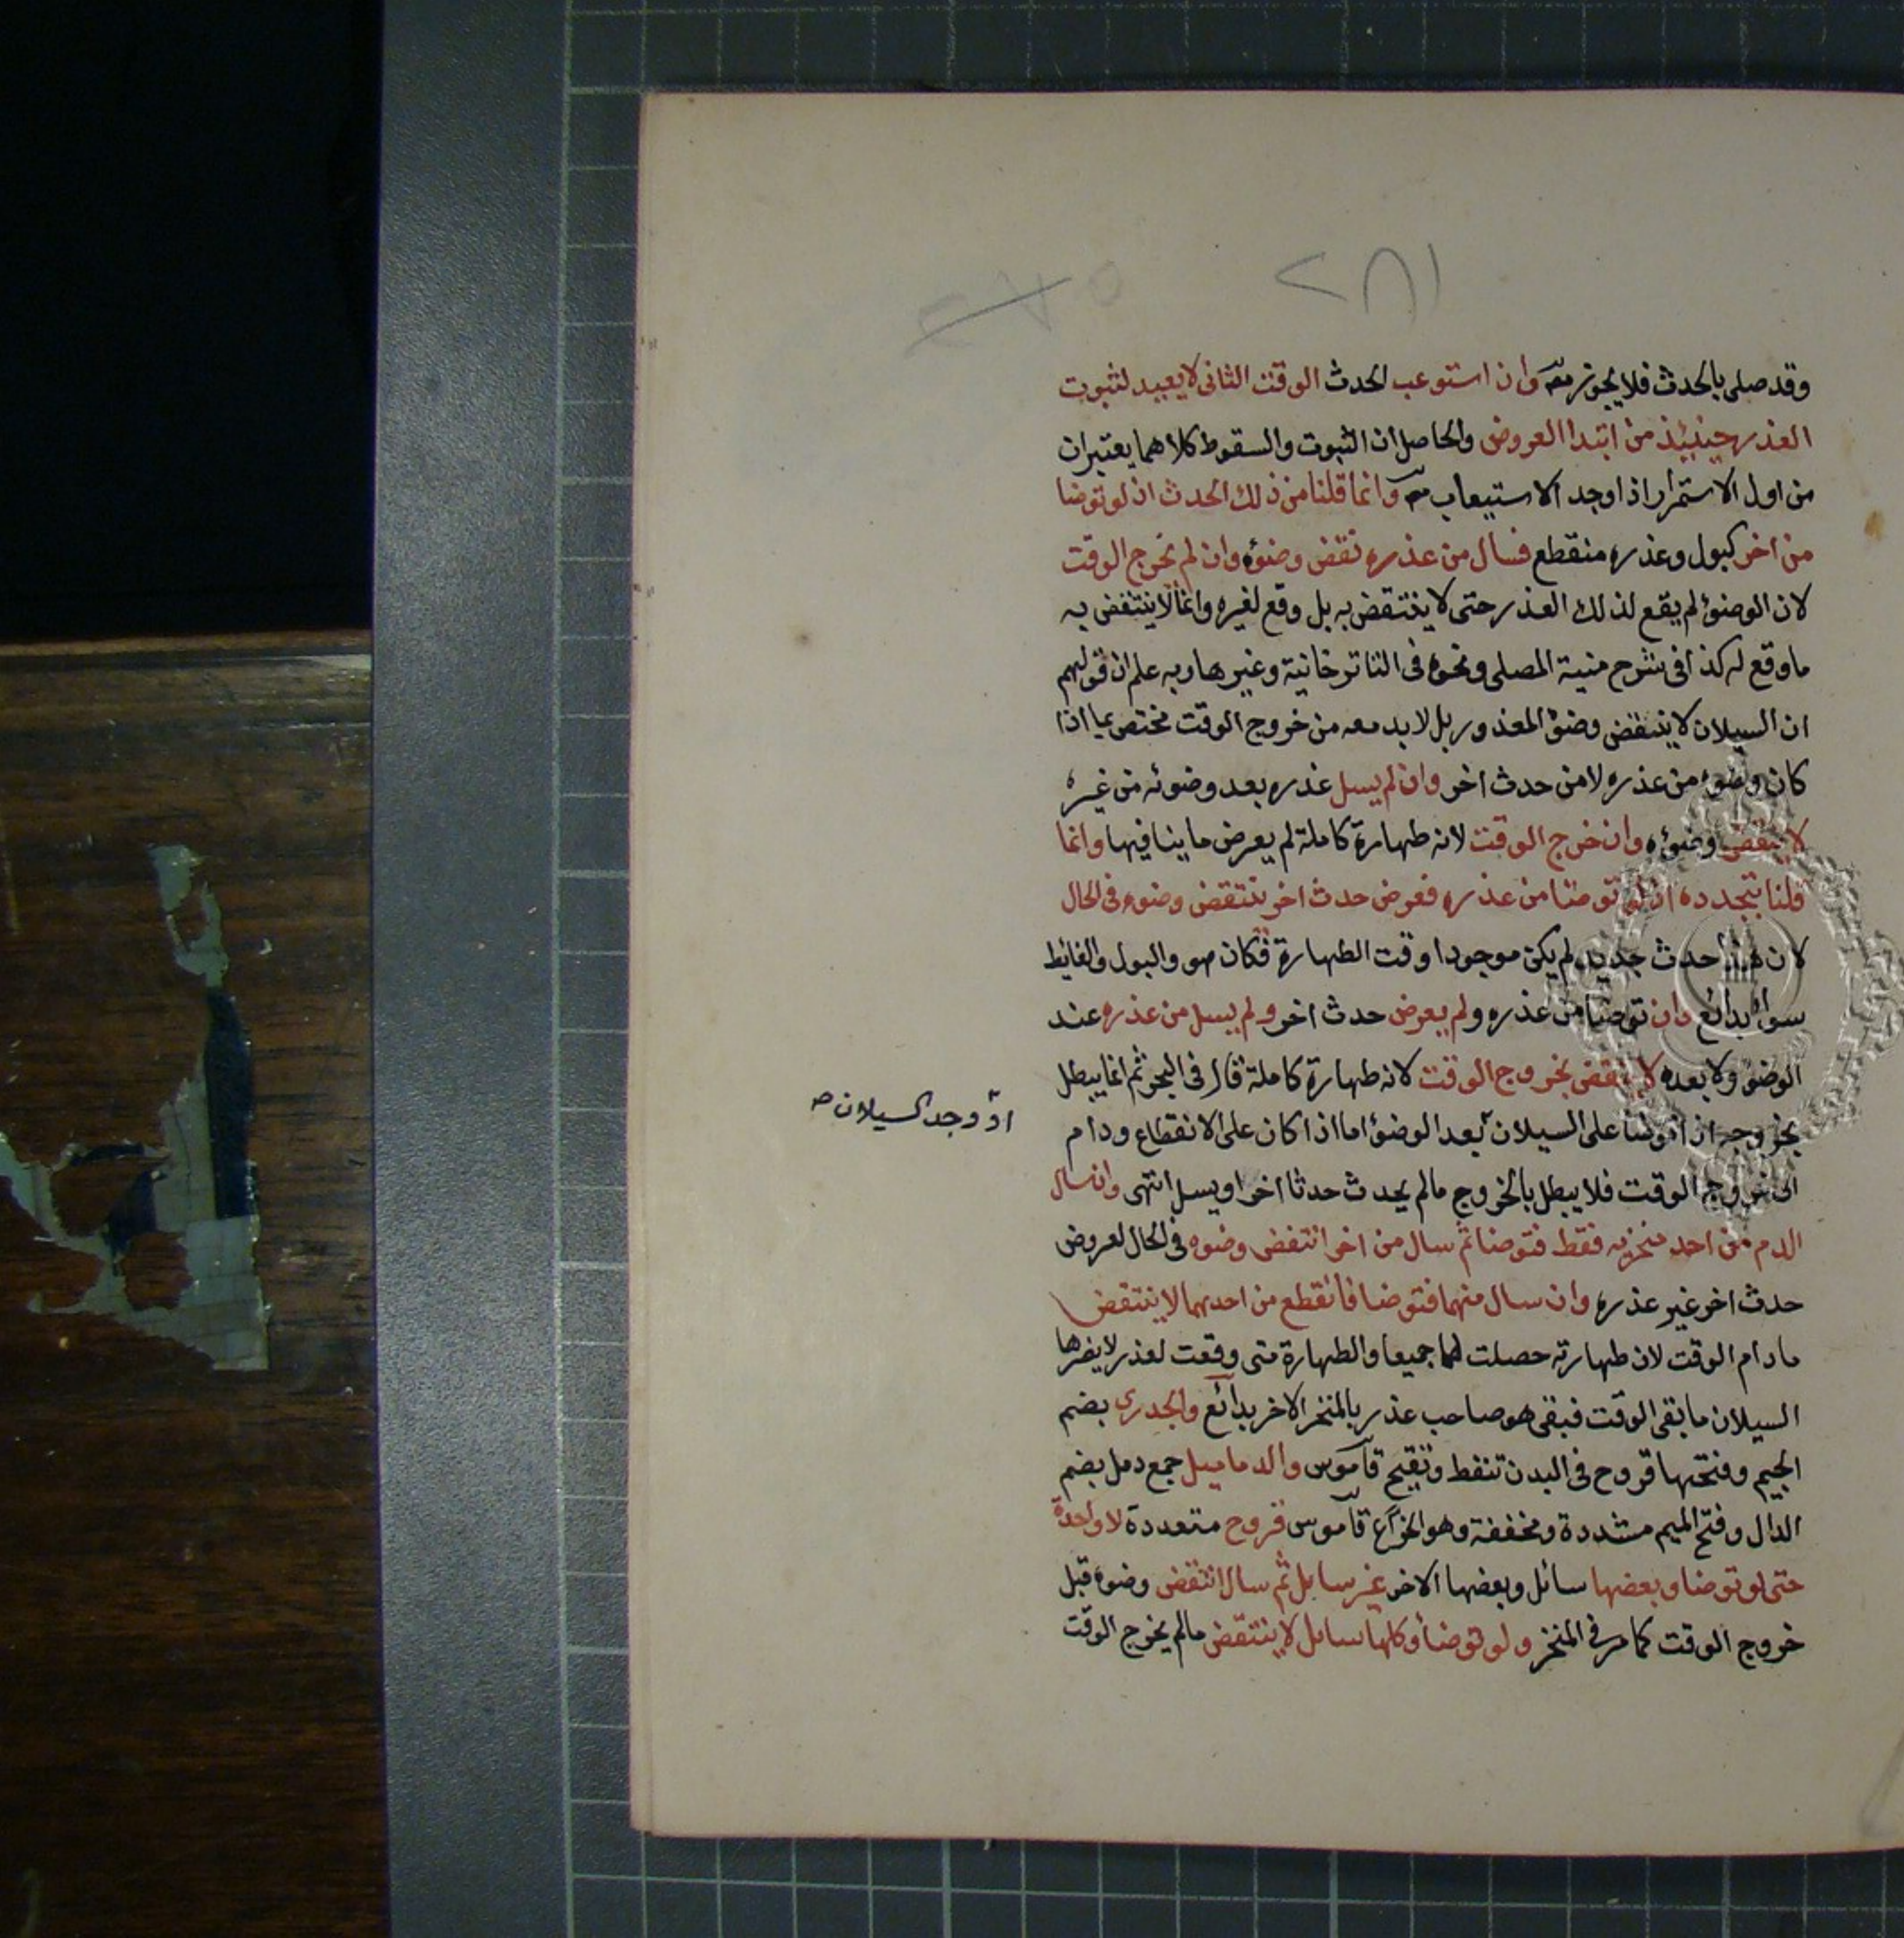 ٢٨١
٢٧٥
وقد صلى بالحدث فلا يجوز مصه وان استوعب الحدث الوقت الثانى لا يعيد لثبوت
العذر حينيئذ من ابتدا العروض والحاصل ان الثبوت والسقوط كلاهما يعتبران
من اول الاستمرار اذا وجد الاستيعاب مصه وانما قلنا من ذلك الحدث اذ لو توضا
من اخر كبول وعذره منقطع فسال من عذره نقض وضوئه وان لم يخرج الوقت
لان الوضوئ لم يقع لذلك العذر حتى لا ينتقض به بل وقع لغيره وانما لا ينتقض به
ما وقع له كذا فى شرح منية المصلى ونحوه فى التاترخانية وغيرها وبه علم ان قولهم
ان السيلان لا ينتقض وضؤ المعذور بل لا بد معه من خروج الوقت مختص بما اذا
كان وضوء من عذره لا من حدث اخر وان لم يسل عذره بعد وضوئه من غيره
لا ينتقض وضوئه وان خرج الوقت لانه طهارة كاملة لم يعرض ما ينافيها وانما
قلنا بتجدده اذ لو توضا من عذره فعرض حدث اخر ينتقض وضوءه فى الحال
لان هذا حدث جديد لم يكن موجودا وقت الطهارة فكان هو والبول والغايط
سوا بدائع وان توضا من عذره ولم يعرض حدث اخر ولم يسل من عذره عند
الوضؤ ولا بعده لا ينتقض بخروج الوقت لانه طهارة كاملة قال فى البحر ثم انما يبطل
بخروجه اذا توضا على السيلان بعد الوضؤ اما اذا كان على الانقطاع ودام
او وجد السيلان صح
الى خروج الوقت فلا يبطل بالخروج مالم يحدث حدثا اخر او يسل انتهى وان سال
الدم من احد منخريه فقط فتوضا ثم سال من اخر انتقض وضوه فى الحال لعروض
حدث اخر غير عذره وان سال منهما فتوضا فانقطع من احدهما لا ينتقض
ما دام الوقت لان طهارته حصلت لهما جميعا والطهارة متى وقعت لعذر لا يضرها
السيلان ما بقى الوقت فبقى هو صاحب عذر بالمنخر الاخر بدائع والجدرى بضم
الجيم وفتحها قروح فى البدن تنفط وتقيح قاموس والدماميل جمع دمل بضم
الدال وفتح الميم مشددة ومخففة وهو الخراج قاموس قروح متعددة لا واحدة
حتى لو توضا وبعضها سائل وبعضها الاخر غير سايل ثم سال انتقض وضوه قبل
خروج الوقت كما مر فى المنخر ولو توضا وكلها سايل لا ينتقض مالم يخرج الوقت